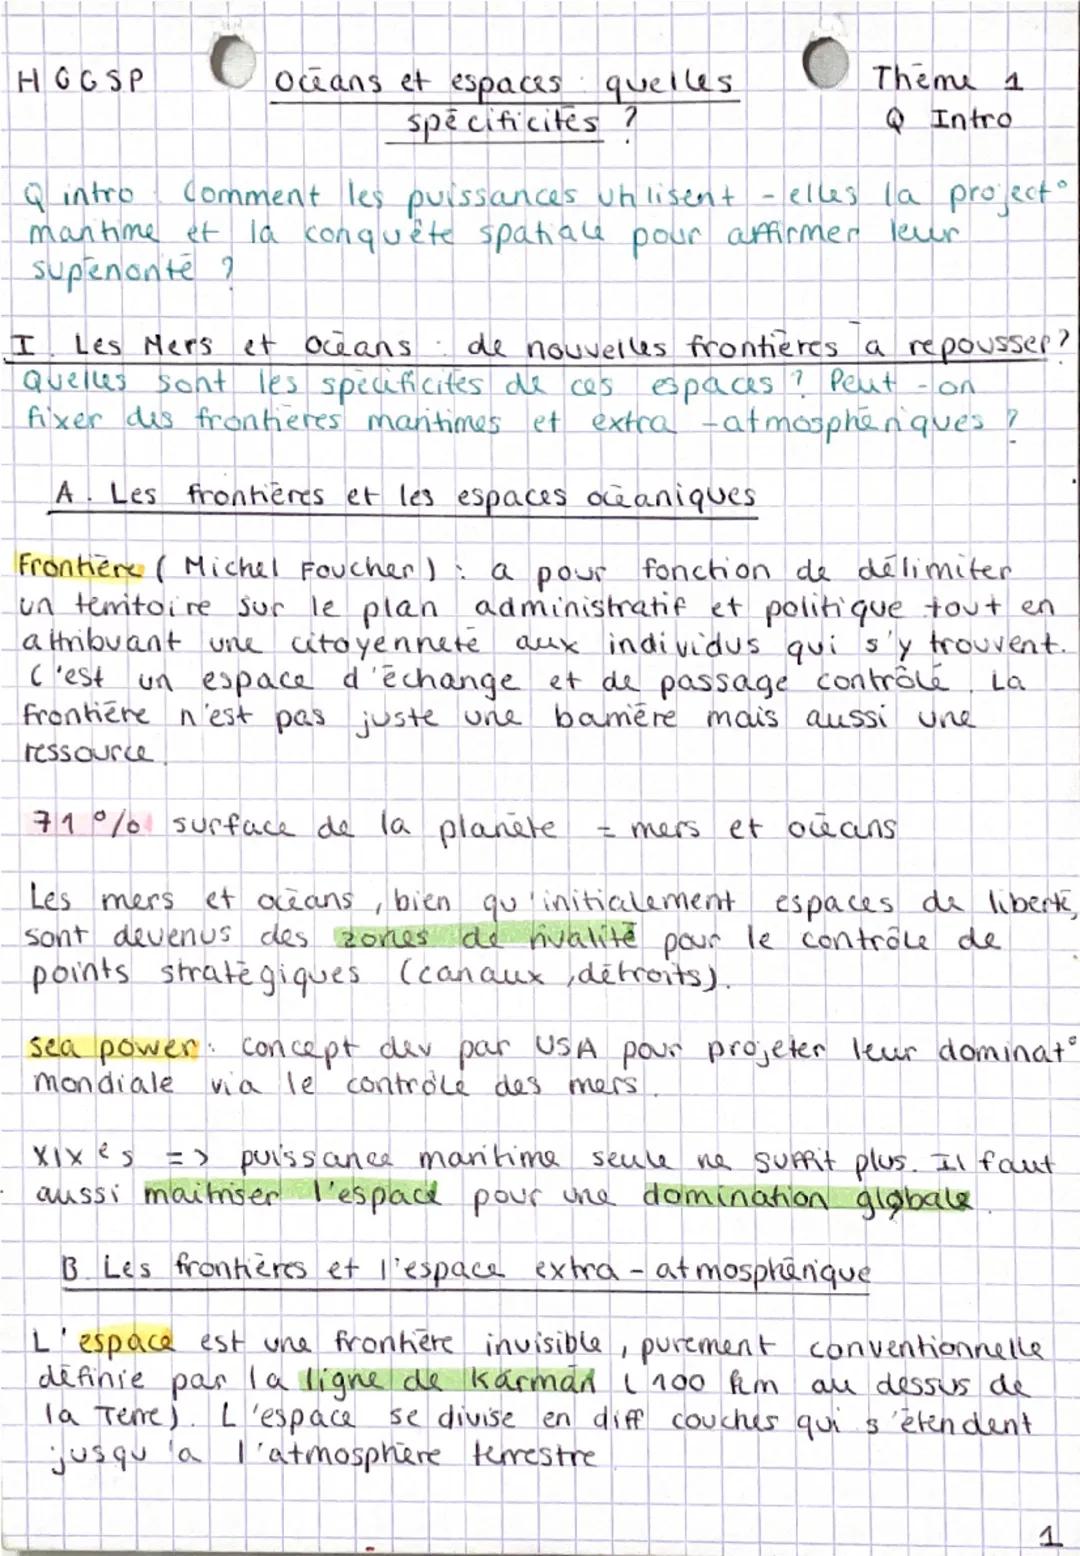 HGGSP
Océans et espaces : quelles
spécificités ?
Thème 1
Q Intro
Q intro : Comment les puissances utilisent-elles la project°
maritime et la conquête spatiale pour affirmer leur
supériorité ?
I. Les Mers et océans : de nouvelles frontières à repousser?
Quelles sont les spécificités de ces espaces ? Peut-on
fixer des frontières maritimes et extra-atmosphériques ?
A. Les frontières et les espaces océaniques
Frontière (Michel Foucher) : a pour fonction de délimiter
un territoire sur le plan administratif et politique tout en
attribuant une citoyenneté aux individus qui s'y trouvent.
C'est un espace d'échange et de passage contrôlé. La
frontière n'est pas juste une barrière mais aussi une
ressource.
71% surface de la planète = mers et océans
Les mers et océans, bien qu'initialement espaces de liberté,
sont devenus des zones de rivalité pour le contrôle de
points stratégiques (canaux, détroits).
sea power : concept dev par USA pour projeter leur dominat°
mondiale via le contrôle des mers.
XIXes => puissance maritime seule ne suffit plus. Il faut
aussi maitriser l'espace pour une domination globale.
B. Les frontières et l'espace extra-atmosphérique
L'espace est une frontière invisible, purement conventionnelle
définie par la ligne de Kármán (100 km au dessus de
la Terre). L'espace se divise en diff couches qui s'étendent
jusqu'à l'atmosphère terrestre.
1